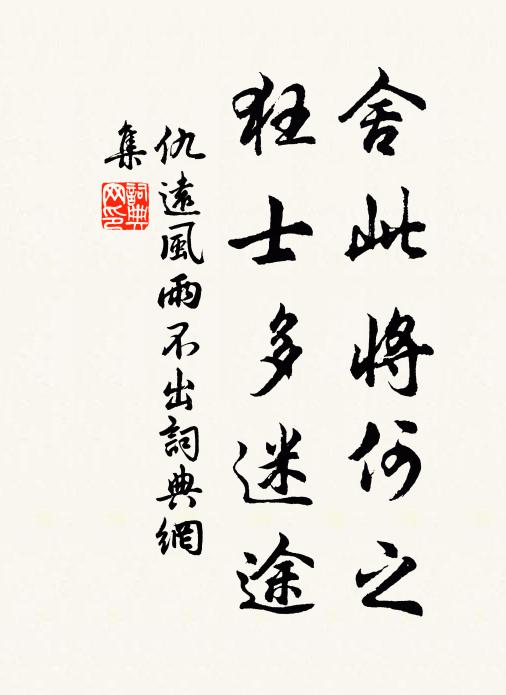 舍此將何之
狂士多迷途
仇遠風雨不出詞典網
集
詞典網印